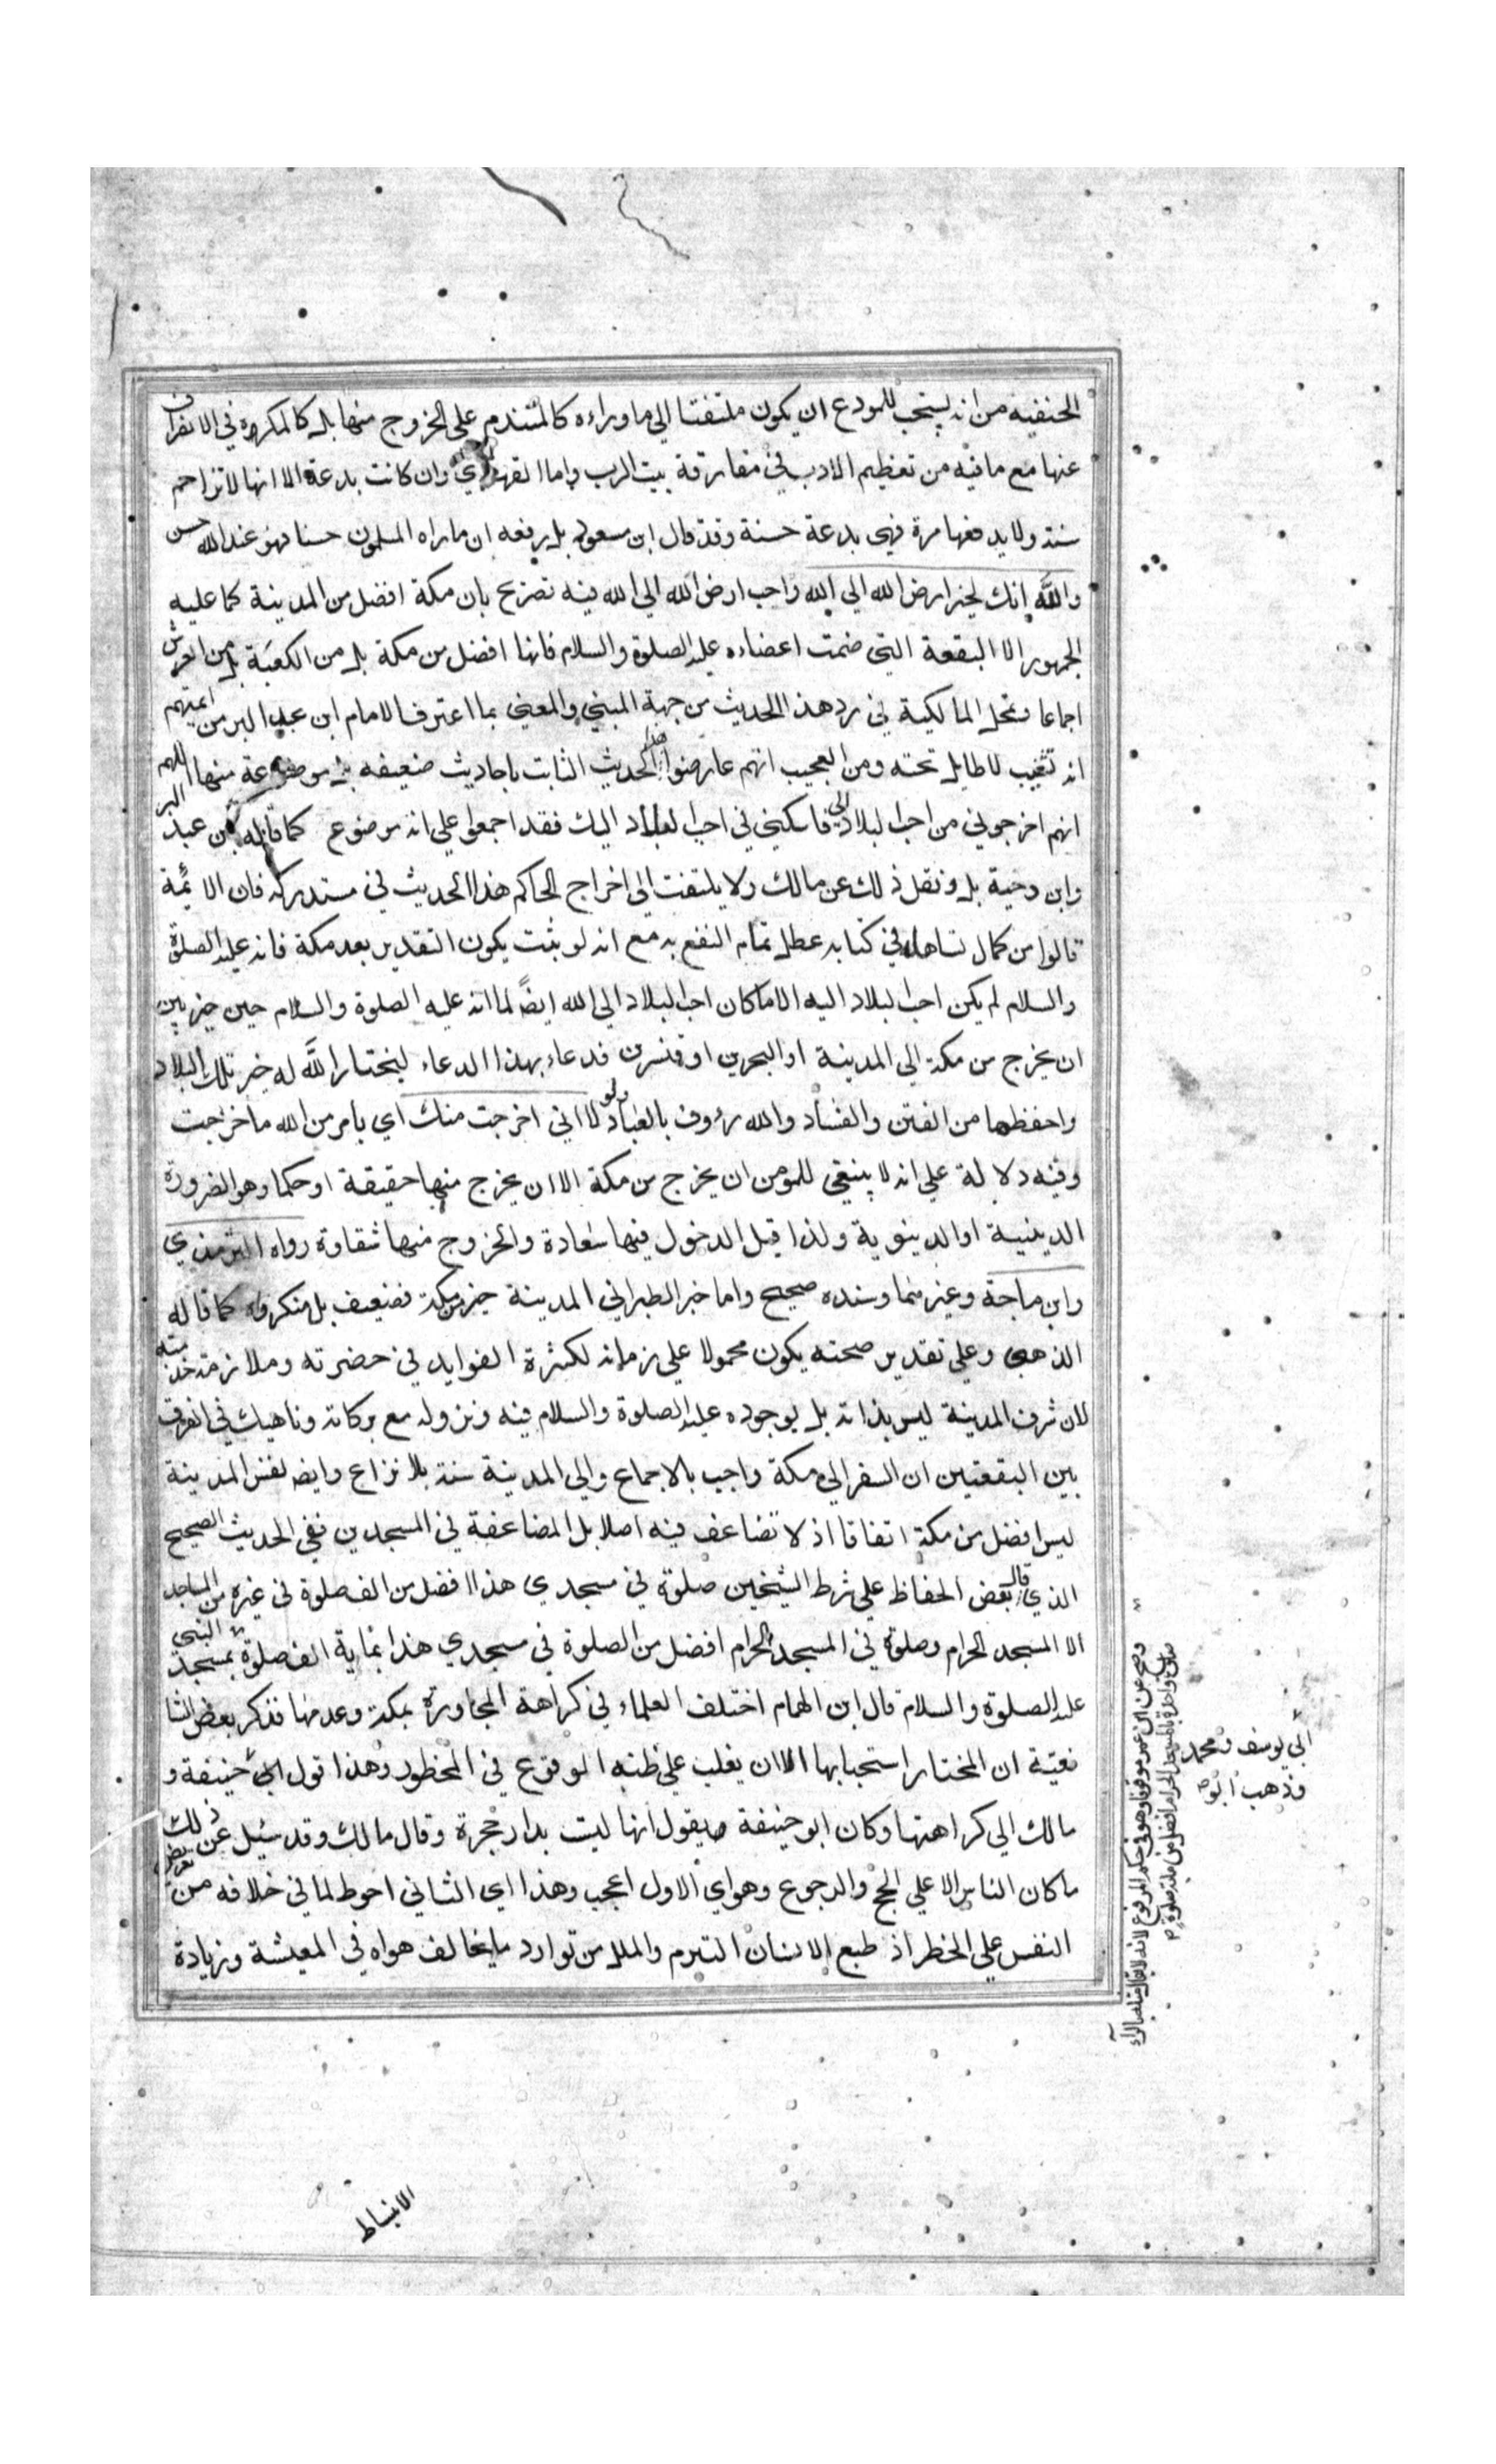 الحنفيه من انه يستحب للمودع ان يكون ملتفتا الي ما وراءه كالمتندم علي الخروج منها بل كالمكره في الانفراق
عنها مع ما فيه من تعظيم الادب في مفارقة بيت الرب واما القهقري وان كانت بدعة الا انها لا تزاحم
سنة ولا يدفعها مرة فهي بدعة حسنة وقد قال ابن مسعود بل رفعه ان ما راه المسلمون حسنا فهو عند الله حسن
والله إنك لخير ارض الله الي الله واحب ارض الله الي الله فيه تصريح بان مكة افضل من المدينة كما عليه
الجمهور الا البقعة التي ضمت اعضاءه عليه الصلوة والسلام فانها افضل من مكة بل من الكعبة بل من العرش
اجماعا وتمحل المالكية في رد هذا الحديث من جهة المبني والمعني بما اعترف الامام ابن عبد البر من ايمتهم
انه تعب لا طايل تحته ومن العجيب انهم عارضوا هذا الحديث الثابت باحاديث ضعيفه بل موضوعة منها اللهم
انهم اخرجوني من احب البلاد الي فاسكني في احب البلاد اليك فقد اجمعوا علي انه موضوع كما قاله ابن عبد البر
وابن دحية بل ونقل ذلك عن مالك ولا يلتفت الي اخراج الحاكم هذا الحديث في مستدركه فان الايمة
قالوا من كمال تساهله في كتابه عطل تمام النفع به مع انه لو ثبت يكون التقدير بعد مكة فانه عليه الصلوة
والسلام لم يكن احب البلاد اليه الا ما كان احب البلاد الي الله ايضاً لما انه عليه الصلوة والسلام حين خير بين
ان يخرج من مكة الي المدينة او البحرين او قنسرين فدعاء بهذا الدعاء ليختار الله له خير تلك البلاد
واحفظها من الفتن والفساد والله رؤوف بالعباد ولو لا اني اخرجت منك اي بامر من الله ما خرجت
وفيه دلالة علي انه لا ينبغي للمومن ان يخرج من مكة الا ان يخرج منها حقيقة او حكما وهو الضرورة
الدينية او الدينوية ولذا قيل الدخول فيها سعادة والخروج منها شقاوة رواه الترمذي
وابن ماجة وغيرهما وسنده صحيح واما خبر الطبراني المدينة خير من مكة فضعيف بل منكر واه كما قاله
الذهبي وعلي تقدير صحته يكون محمولا علي زمانه لكثرة الفوايد في حضرته وملازمة خدمته
لان شرف المدينة ليس بذاته بل بوجوده عليه الصلوة والسلام فيه ونزوله مع بركاته وناهيك في الفرق
بين البقعتين ان السفر الي مكة واجب بالاجماع والي المدينة سنة بلا نزاع وايضا نفس المدينة
ليس افضل من مكة اتفاقا اذ لا تضاعف فيه اصلا بل المضاعفة في المسجدين ففي الحديث الصحيح
الذي قال بعض الحفاظ علي شرط الشيخين صلوة في مسجدي هذا افضل من الف صلوة في غيره من المساجد
الا المسجد الحرام وصلوة في المسجد الحرام افضل من الصلوة في مسجدي هذا بماية الف صلوة بمسجد النبي
عليه الصلوة والسلام قال ابن الهمام اختلف العلماء في كراهة المجاورة بمكة وعدمها فذكر بعض الشا
فعية ان المختار استحبابها الا ان يغلب علي ظنه الوقوع في المحظور وهذا قول ابي حنيفة و
مالك الي كراهتها وكان ابو حنيفة يقول انها ليست بدار هجرة وقال مالك وقد سئيل عن ذلك
ما كان الناس الا علي الحج والرجوع وهو اي الاول اعجب وهذا اي الثاني احوط لما في خلافه من تعريض
النفس علي الخطر اذ طبع الانسان التبرم والملل من توارد ما يخالف هواه في المعيشة وزيادة
وصح عن ابن عمر موقوفا وهو في حكم المرفوع لانه لا يقال مثله بالرأي
صلوة واحدة بالمسجد الحرام افضل من ماية صلوة
ابي يوسف ومحمد
وذهب ابو
الانبساط